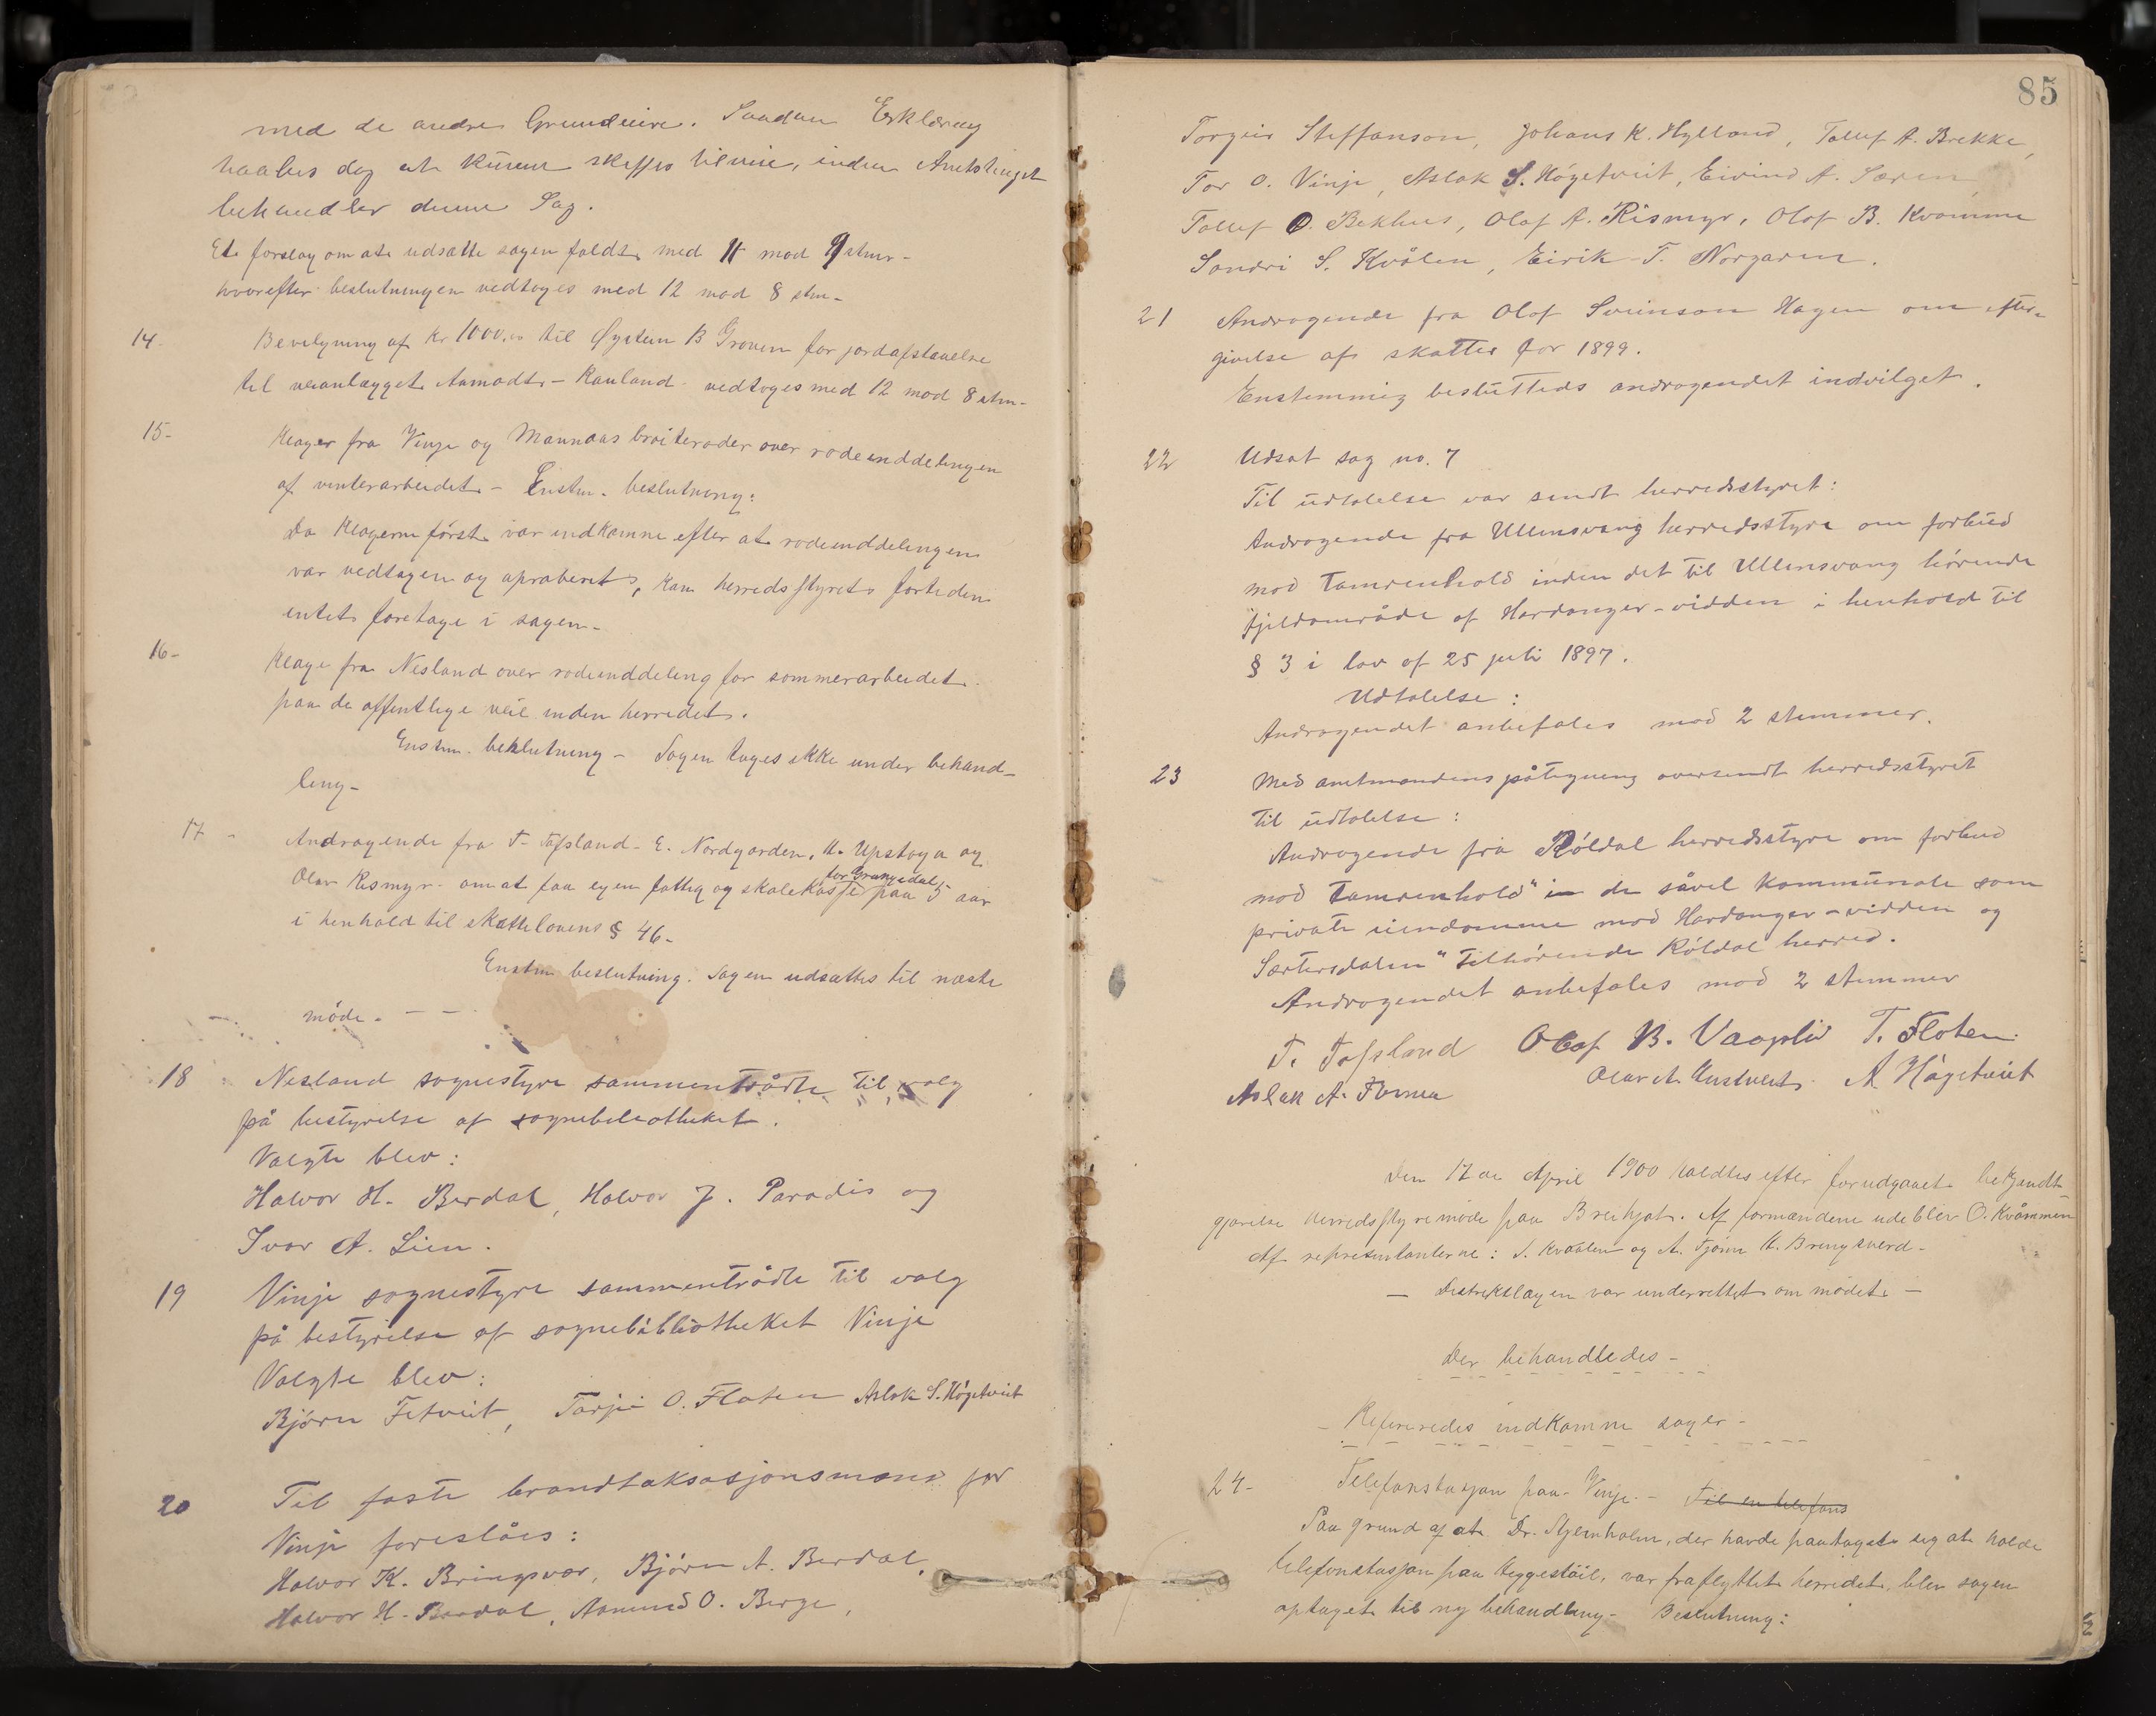 med de andre Grundeiere. Saadan Erklæring
haabes dog at kunne skaffes tilveie, inden Amtstinget
behandler denne Sag.
Et forslag om at udsætte sagen faldt med 11 mod 9 stm-
hvorefter beslutningen vedtoges med 12 mod 8 stm-
14- Bevilgning af kr 1000,00 til Øystein B Groven for jordafstaaelse
til veianlægget Aamodt - Rauland vedtoges med 12 mod 8 stm-
15- Klager fra Vinje og Mannaas broiteroder over rodeinddelingen
af vinterarbeidet - Enstm. beslutning:
Da klagerne först var indkomne efter at rodeinddelingen
var vedtagen og aproberet, kan herredsstyret fortiden
intet foretage i sagen-
16- Klage fra Nesland over rodeinddeling for sommerarbeidet
paa de offentlige veie inden herredet.
Enstm. beslutning - Sagen tages ikke under behand-
ling-
17- Andragende fra T. Tofsland - E. Nordgarden, H. Upstoga og
for Grungedal
Olav Rismyr om at faa egen fattig og skolekasse paa 5 aar
i henhold til skattelovens § 46-
Enstm beslutning. Sagen udsættes til næste
möde. - -
18 Nesland sognestyre sammentrådte til valg
på bestyrelse af sognebibliotheket.
Valgte blev:
Halvor H. Berdal, Halvor J. Paradis og
Ivar A. Lien.
19 Vinje sognestyre sammentrådte til valg
på bestyrelse af sognebibliotheket Vinje
Valgte blev:
Björn Fetveit, Tarjei O. Floten Aslak S. Högetveit
20 Til faste brandtaksasjonsmænd for
Vinje foreslåes:
Halvor K. Bringsvor, Björn A. Berdal,
Halvor H. Berdal, Aamund O. Berge,
85
Torgeir Steffanson, Johans K. Hylland, Tallef A. Brekke,
Tor O. Vinje, Aslak S. Högetveit, Eivind A. Særen,
Tallef O. Bekhus, Olaf A. Rismyr, Olof B. Kvamme
Sondri S. Kvålen, Eirik T. Norgaren.
21 Andragende fra Olof Sveinson Hagen om efter-
givelse af skatter for 1899.
Enstemmig besluttedes andragendet indvilget.
22 Udsat sag no. 7
Til udtalelse var sendt herredsstyret:
Andragende fra Ullensvang herredsstyre om forbud
mod tamrenhold inden det til Ullensvang hörende
fjeldområde af Hardanger-vidden i henhold til
§ 3 i lov af 25 juli 1897.
Udtalelse:
Andragendet anbefales mod 2 stemmer.
23 Med amtmandens påtegning oversendt herredsstyret
til udtalelse:
Andragende frå Röldal herredsstyre om forbud
mod tamrenhold "in de såvel kommunale som
private eiendomme mod Hardanger-vidden og
Sætersdalen" tilhörende Röldal herred.
Andragendet anbefales mod 2 stemmer
T. Tofsland Olaf B. Vaagsliv T. Floten
Aslak A. Flornes Olav A. Hustveit. A Högetveit
Den 17de April 1900 holdtes efter forudgaaet bekjendt
gjörelse herredsstyremöde paa Breikjot. Af formændene udeblev O. Kvåmmen
Af representanterne: S. Kvaalen og A. Fjönn H. Bringsverd-
- Distriktslægen var underrettet om mödet -
Der behandledes-
- Refereredes indkomne sager -
24- Telefonstasjon paa Vinje. - Til en telefons
Paa grund af at Dr. Stjernholm, der havde paataget sig at holde
telefonstasjon paa Heggestöil, var fraflyttet herredet, blev sagen
optaget til ny behandling- Beslutning: